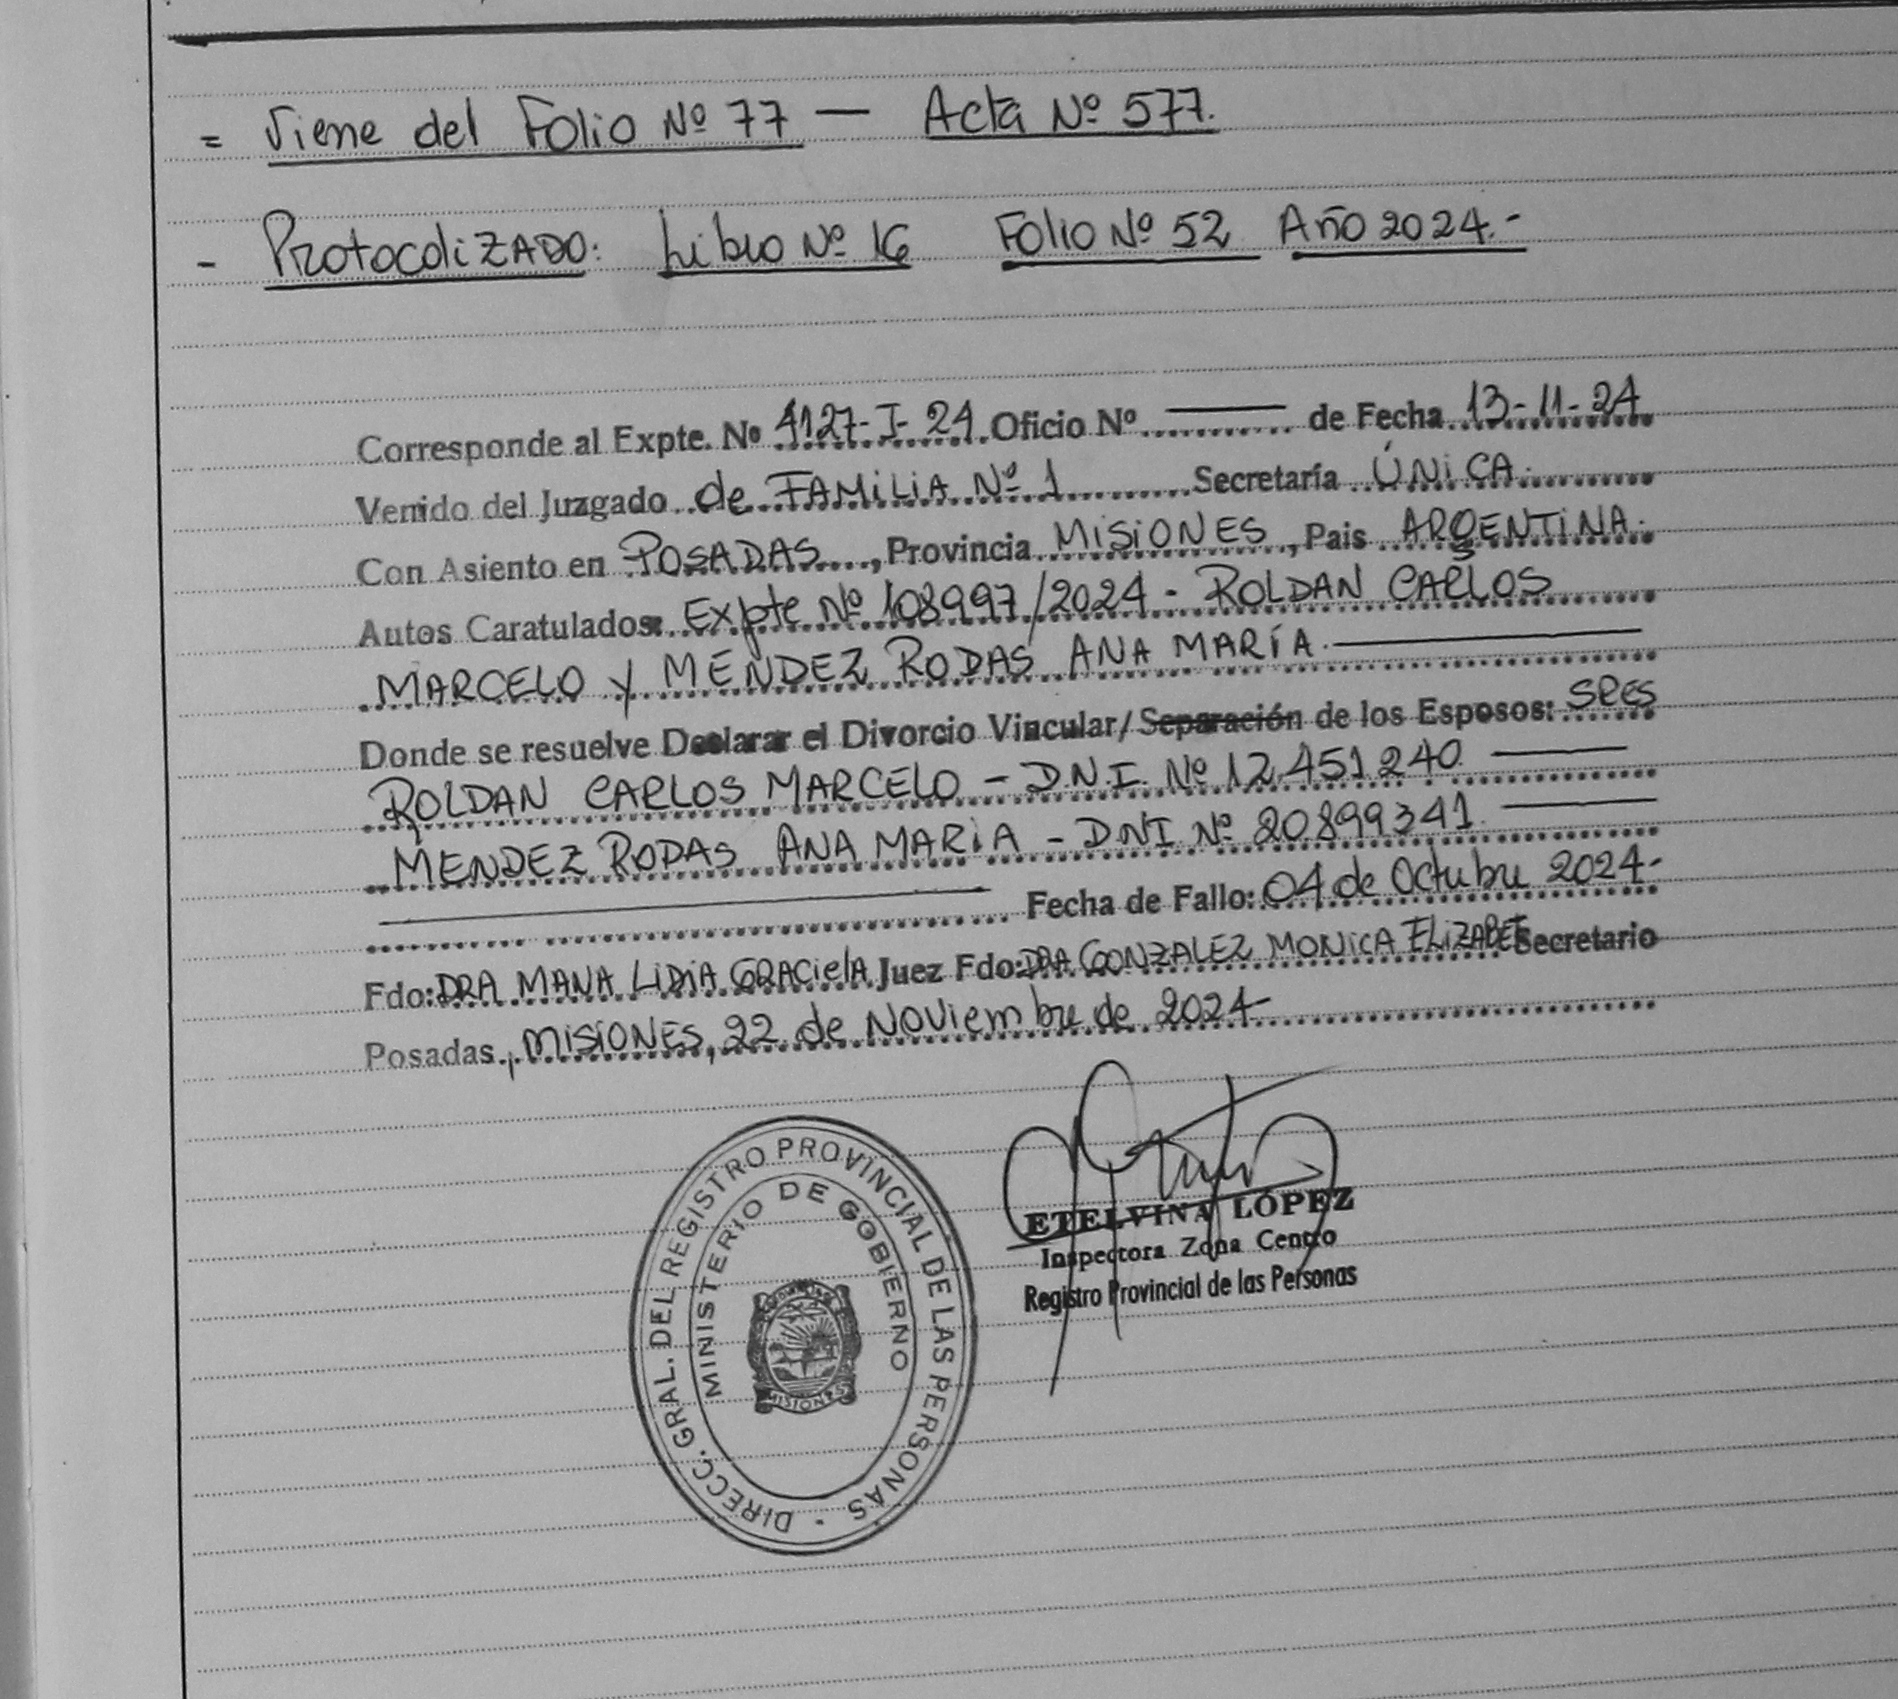 = Viene del Folio Nº 77 — Acta Nº 577.
- Protocolizado: Libro Nº 16 Folio Nº 52 Año 2024.-
Corresponde al Expte. Nº 4127-I-24 Oficio Nº ——— de Fecha 13-11-24
Venido del Juzgado de FAMILIA Nº 1 Secretaría ÚNICA.
Con Asiento en POSADAS, Provincia MISIONES, Pais ARGENTINA.
Autos Caratulados: Expte Nº 108997/2024 - ROLDAN CARLOS
MARCELO y MENDEZ RODAS ANA MARÍA.
Donde se resuelve Declarar el Divorcio Vincular/Separación de los Esposos: SRES
ROLDAN CARLOS MARCELO - D.N.I. Nº 12.451240
MENDEZ RODAS ANA MARIA - DNI Nº 20899341
Fecha de Fallo: 04 de Octubre 2024.
Fdo: DRA MANA LIDIA GRACIELA Juez Fdo: DRA GONZALEZ MONICA ELIZABET Secretario
Posadas, MISIONES, 22 de NOVIEMBRE de 2024
DIRECC. GRAL. DEL REGISTRO PROVINCIAL DE LAS PERSONAS
MINISTERIO DE GOBIERNO
MISIONES
ETELVINA LÓPEZ
Inspectora Zona Centro
Registro Provincial de las Personas